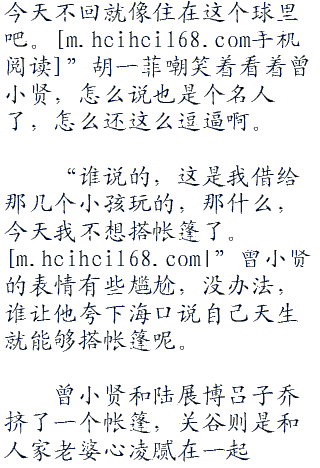 今天不回就像住在这个球里
吧。[m.hcihci168.com手机
阅读]”胡一菲嘲笑着看着曾
小贤，怎么说也是个名人
了，怎么还这么逗逼啊。
“谁说的，这是我借给
那几个小孩玩的，那什么，
今天我不想搭帐篷了。
[m.hcihci168.com|”曾小贤
的表情有些尴尬，没办法，
谁让他夸下海口说自己天生
就能够搭帐篷呢。
曾小贤和陆展博吕子乔
挤了一个帐篷，关谷则是和
人家老婆心凌腻在一起